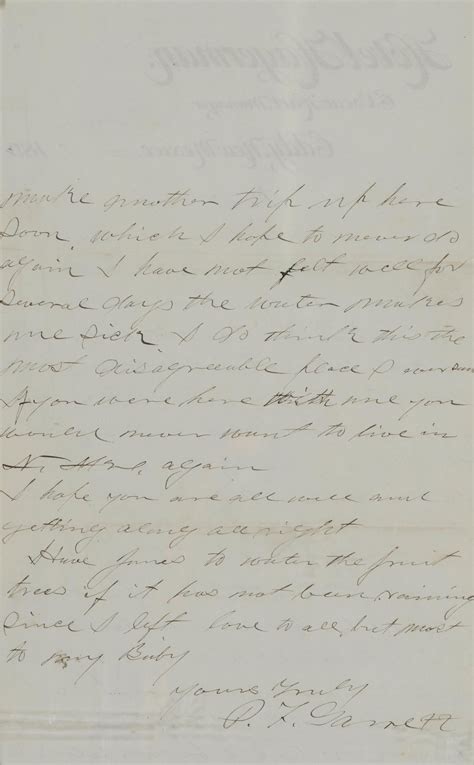 make another trip up here
soon, which I hope to never do
again I have not felt well for
several days the water makes
me sick, I do think this the
most disagreeable place I ever saw
If you were here with me you
would never want to live in
N. Mex. again
I hope you are all well and
getting along all right
Have Jones to water the fruit
trees if it has not been raining
since I left love to all, but most
to my Baby
Yours Truly
P. F. Garrett